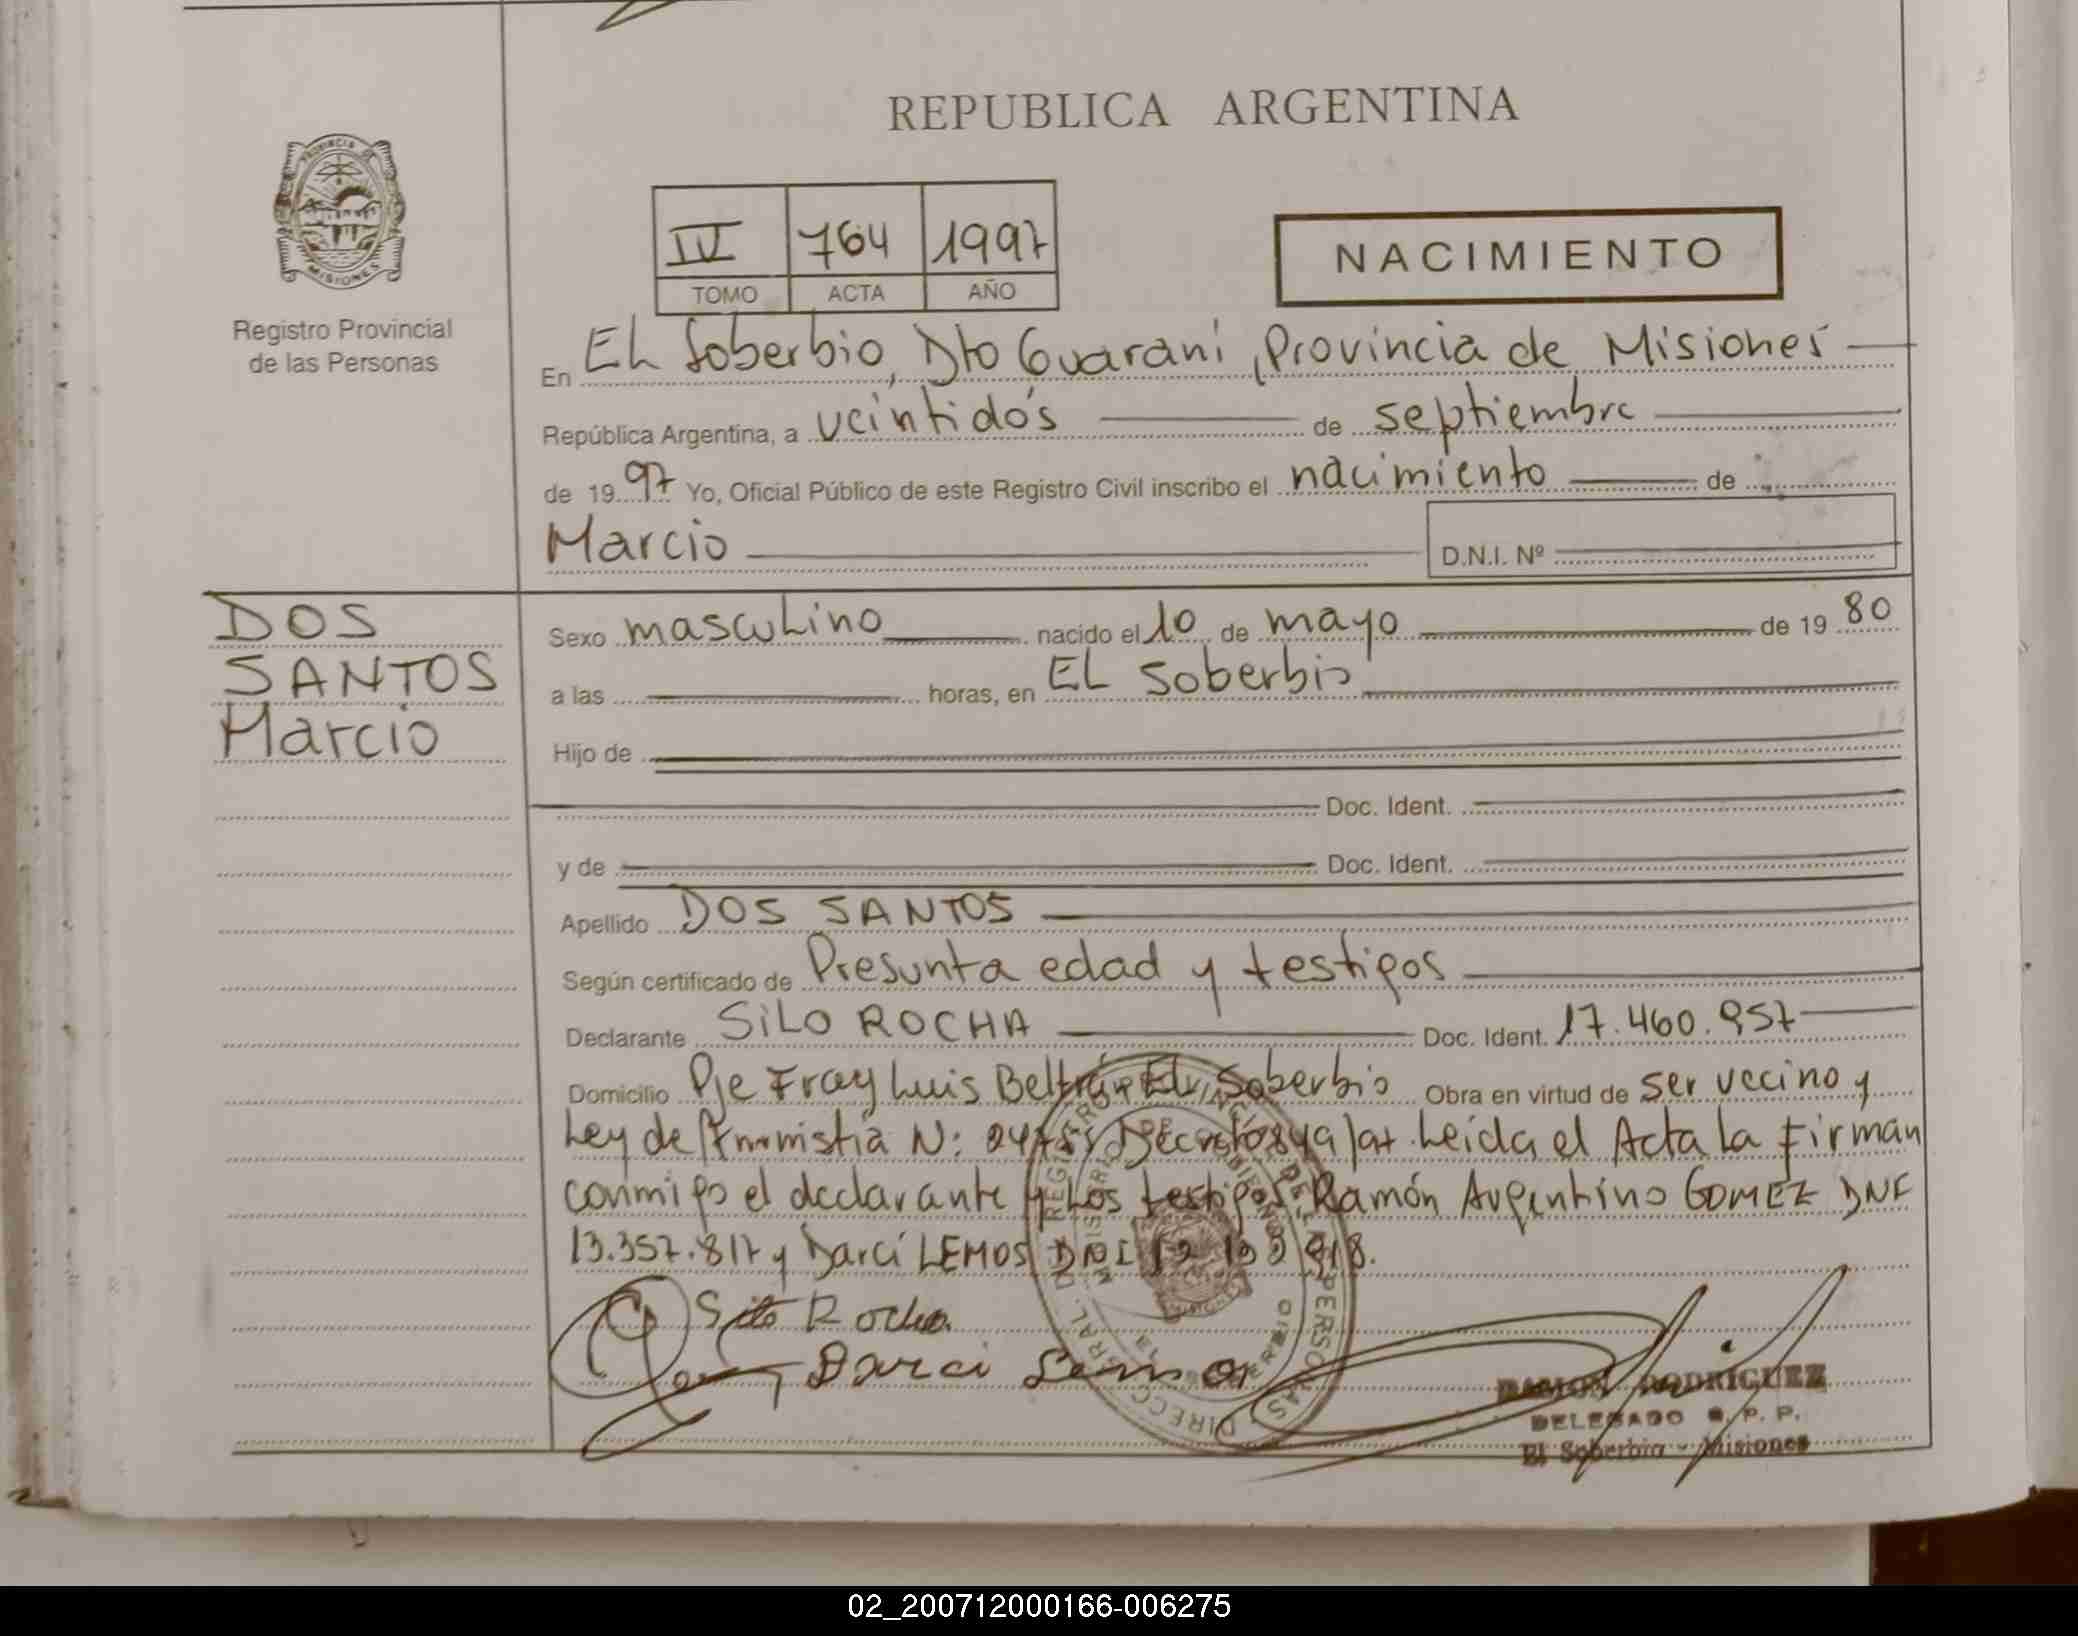 REPUBLICA ARGENTINA
PROVINCIA DE
MISIONES
Registro Provincial
de las Personas
IV 764 1997
TOMO ACTA AÑO
NACIMIENTO
En EL Soberbio, Dto Guaraní, Provincia de Misiones
República Argentina, a veintidós de septiembre
de 1997 Yo, Oficial Público de este Registro Civil inscribo el nacimiento de
Marcio D.N.I. Nº
DOS
SANTOS
Marcio
Sexo masculino nacido el 10 de mayo de 1980
a las horas, en EL Soberbio
Hijo de
Doc. Ident.
y de Doc. Ident.
Apellido DOS SANTOS
Según certificado de Presunta edad y testigos
Declarante SiLO ROCHA Doc. Ident. 17.460.957
Domicilio Pje Fray Luis Beltrán EL Soberbio Obra en virtud de ser vecino y
Ley de Amnistia N: Decreto Leida el Acta la firman
conmigo el declarante y los testigos Ramón Argentino GOMEZ DNI
13.357.817 y Darcí LEMOS DNI
Silo Rocha
Darci Lemos
RAMON RODRIGUEZ
DELEGADO R. P. P.
El Soberbio - Misiones
02_200712000166-006275